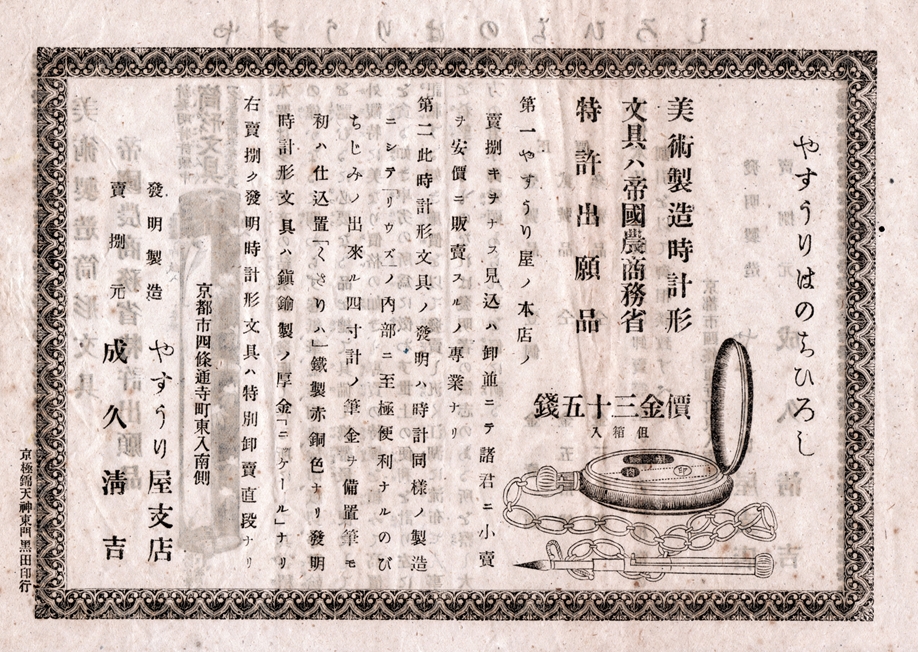 やすうりはのちひろし
美術製造時計形
文具ハ帝國農商務省
特許出願品
價金三十五錢
但箱入
印
第一やすうり屋ノ本店ノ
賣捌キヲナス見込ハ卸並ニテ諸君ニ小賣
ヲ安價ニ販賣スルノ專業ナリ
第二此時計形文具ノ發明ハ時計同樣ノ製造
ニシテ「リウズ」ノ内部ニ至極便利ナルのび
ちじみノ出來ル四寸計ノ筆金ヲ備置筆モ
初ハ仕込置「くさりハ」鐵製赤銅色ナリ發明
時計形文具ハ鎭鍮製ノ厚金「ニケール」ナリ
右賣捌ク發明時計形文具ハ特別卸賣直段ナリ
京都市四條通寺町東入南側
發明製造 やすうり屋支店
賣捌元 成久淸吉
京極錦天神東門黒田印行